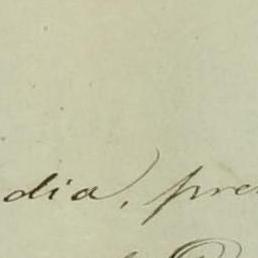 dia, pre